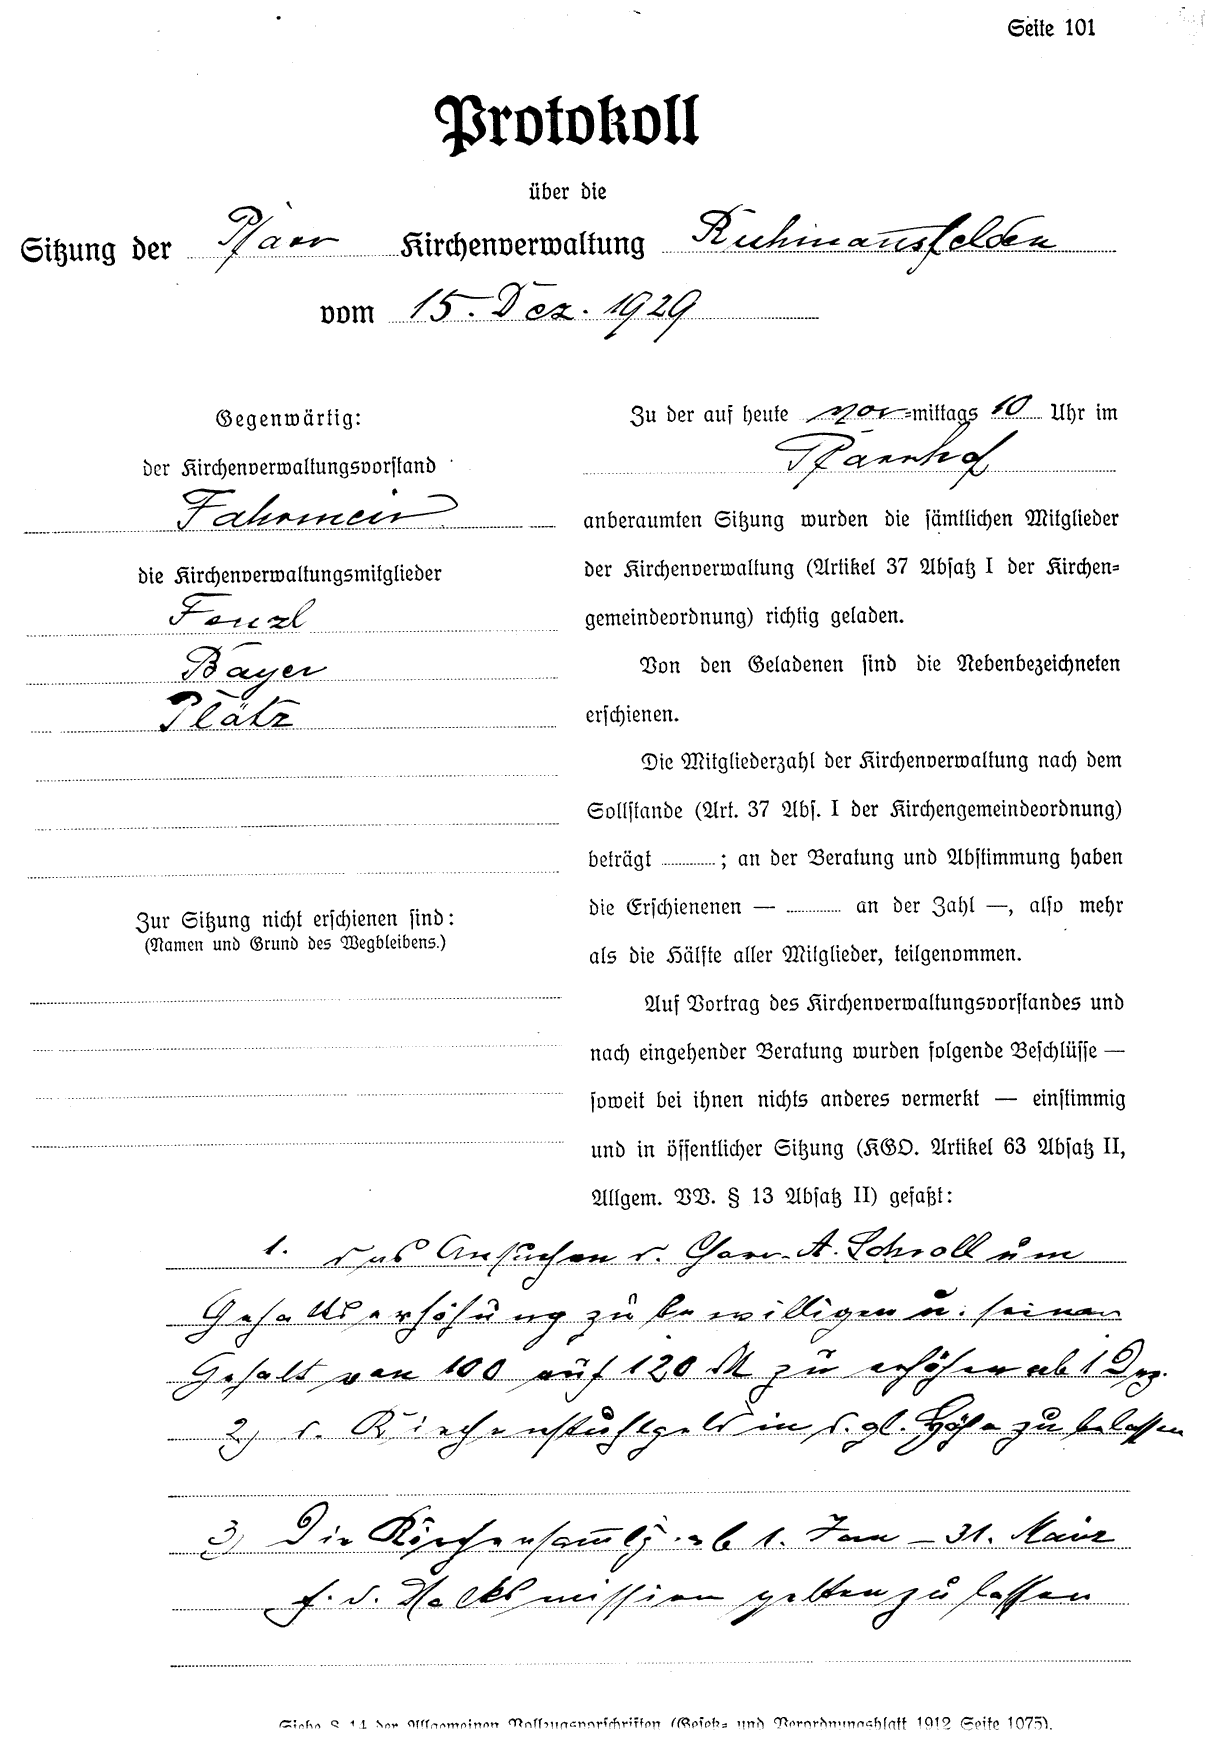 Seite 101
Protokoll
über die
Sitzung der Pfarr Kirchenverwaltung Ruhmannsfelden
vom 15. Dez. 1929
Gegenwärtig:
der Kirchenverwaltungsvorstand
Fahrmeir
die Kirchenverwaltungsmitglieder
Fenzl
Bayer
Plätz
Zur Sitzung nicht erschienen sind:
(Namen und Grund des Wegbleibens.)
Zu der auf heute vor=mittags 10 Uhr im
Pfarrhof
anberaumten Sitzung wurden die sämtlichen Mitglieder
der Kirchenverwaltung (Artikel 37 Absatz I der Kirchen=
gemeindeordnung) richtig geladen.
Von den Geladenen sind die Nebenbezeichneten
erschienen.
Die Mitgliederzahl der Kirchenverwaltung nach dem
Sollstande (Art. 37 Abs. I der Kirchengemeindeordnung)
beträgt ; an der Beratung und Abstimmung haben
die Erschienenen — an der Zahl —, also mehr
als die Hälfte aller Mitglieder, teilgenommen.
Auf Vortrag des Kirchenverwaltungsvorstandes und
nach eingehender Beratung wurden folgende Beschlüsse —
soweit bei ihnen nichts anderes vermerkt — einstimmig
und in öffentlicher Sitzung (KGO. Artikel 63 Absatz II,
Allgem. VV. § 13 Absatz II) gefaßt:
1. das Ansuchen d. A. Schroll um
Gehaltserhöhung zu bewilligen u. seinen
Gehalt von 100 auf 120 M zu erhöhen ab 1 Dez.
2) d. Kirchenstuhlgeld in d. gl. Höhe zu belassen
3) Die Kirchensammlg ab 1. Jan – 31. März
f. d. Volksmission gelten zu lassen
Siehe § 14 der Allgemeinen Vollzugsvorschriften (Gesetz= und Verordnungsblatt 1912 Seite 1075).